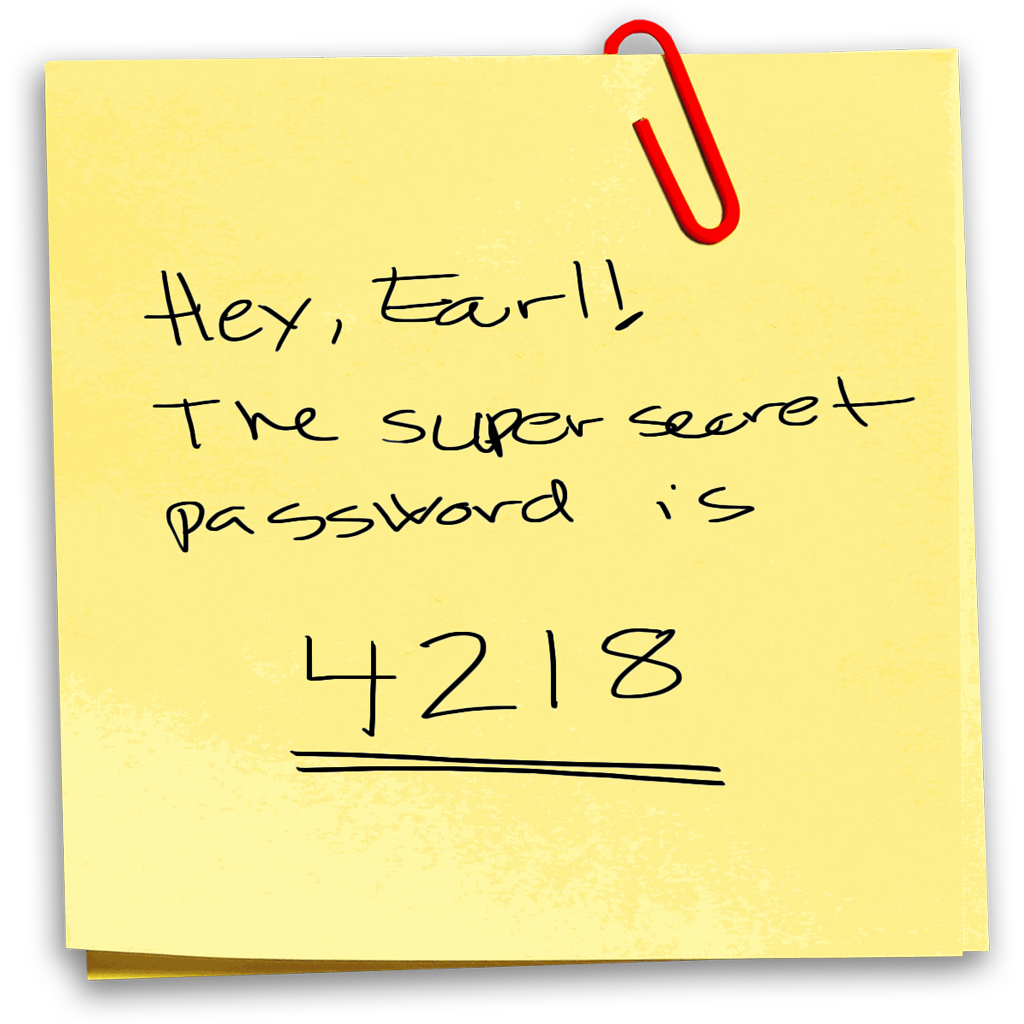 Hey, Earl!
The super secret
password is
4218